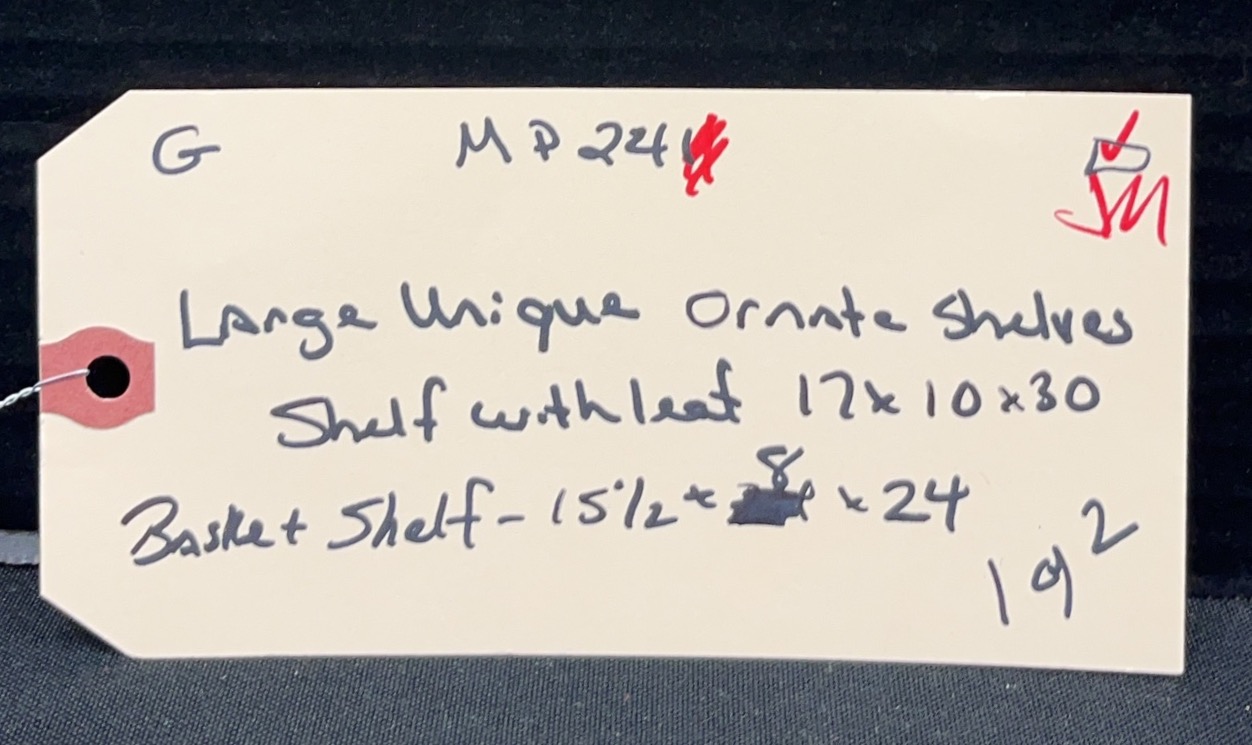 G MP 224
JM
Large Unique Ornate Shelves
Shelf with leaf 17x10x30
Basket Shelf - 15 1/2 x 8 x 24
19 2